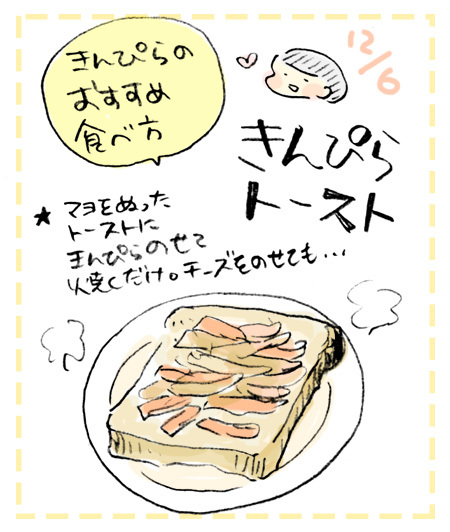 きんぴらの
おすすめ
食べ方
12/6
きんぴら
トースト
★ マヨをぬった
トーストに
きんぴらのせて
焼くだけ。チーズをのせても…